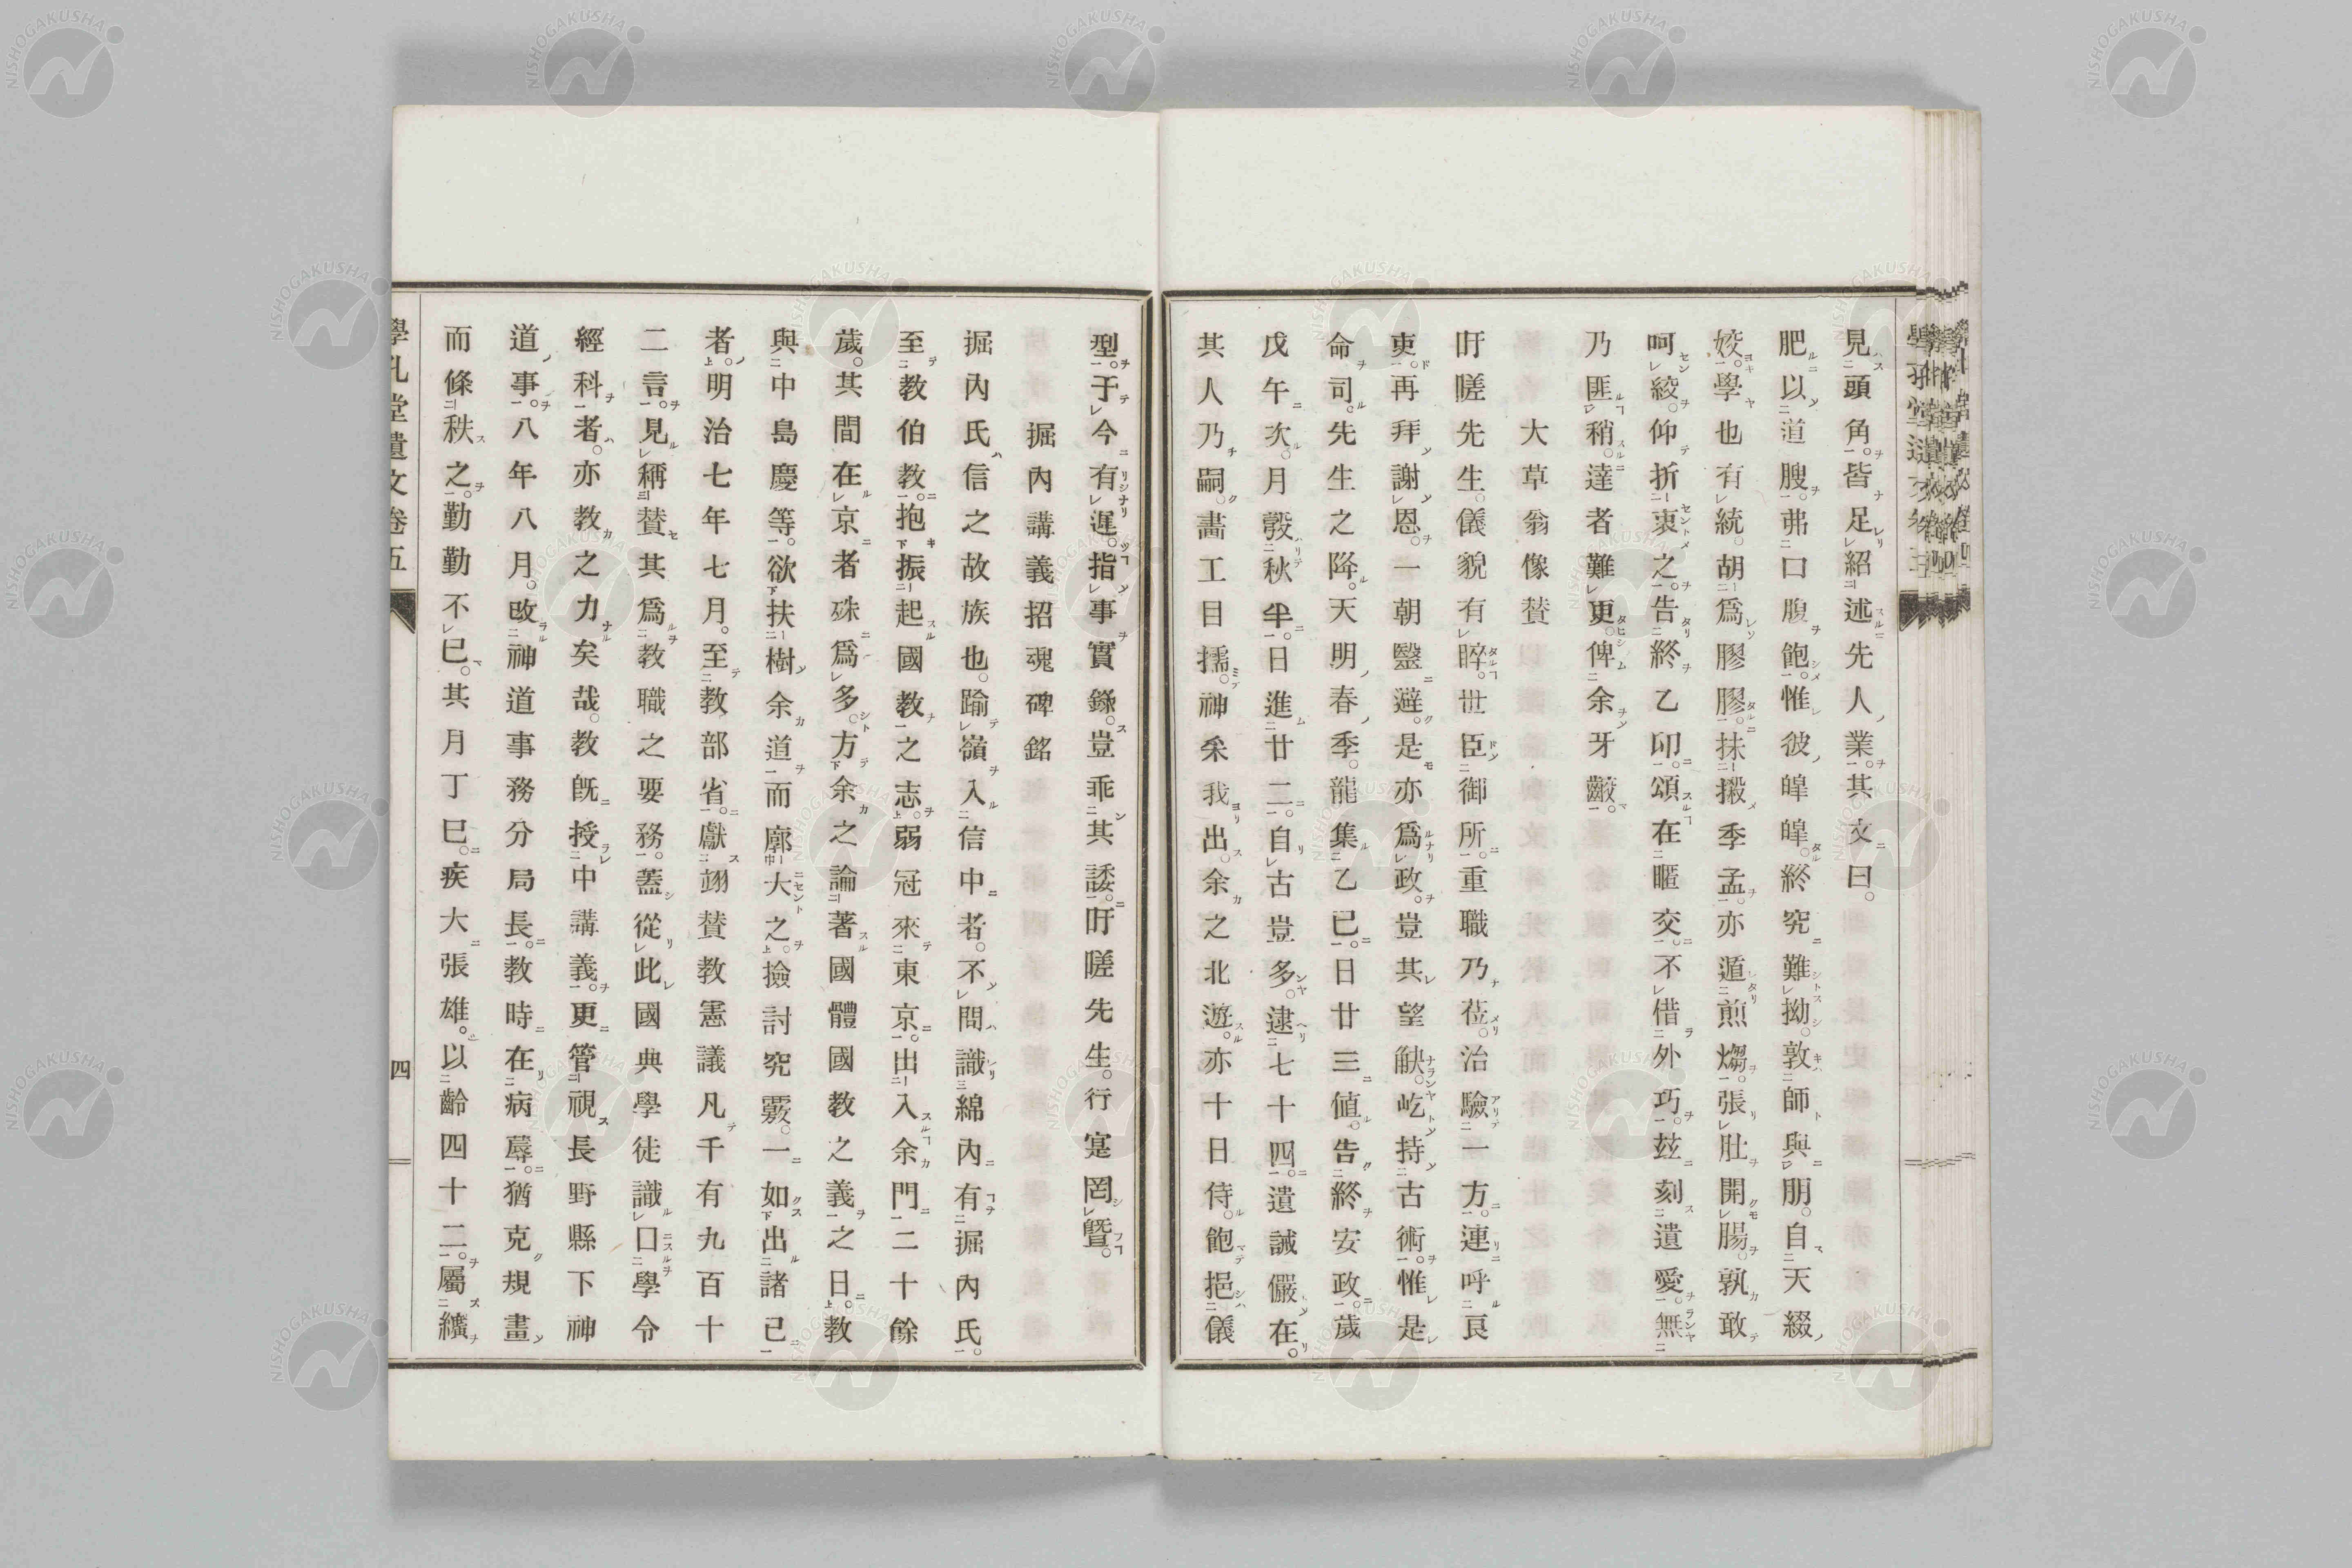 見頭角。皆足紹述先人業。其文曰。
肥以道腴。弗口腹飽。惟彼皡皡。終究難拗。敦師與朋。自天綴
姣。學也有統。胡爲膠膠。抹摋季孟。亦遁煎煼。張肚開腸。孰敢
呵絞。仰折衷之。告終乙卯。頌在暱交。不借外巧。玆刻遺愛。無
乃匪稍。達者難更。俾余牙齩。
大草翁像贊
吁嗟先生。儀貌有睟。世臣御所。重職乃莅。治驗一方。連呼良
吏。再拜謝恩。一朝鑿遯。是亦爲政。豈其望觖。屹持古術。惟是
命司。先生之降。天明春季。龍集乙巳。日廿三値。告終安政。歲
戊午次。月彀秋半。日進廿二。自古豈多。逮七十四。遺誡儼在。
其人乃嗣。畵工目擩。神采我出。余之北遊。亦十日侍。飽挹儀
型。于今有遅。指事實錄。豈乖其諉。吁嗟先生。行寔罔曁。
掘內講義招魂碑銘
掘內氏信之故族也。踰嶺入信中者。不問識綿內有掘內氏。
至敎伯敎。抱振起國敎之志。弱冠來東京。出入余門二十餘
歲。其間在京者硃爲多。方余之論著國體國敎之義之日。敎
與中島慶等。欲扶樹余道而廓大之。撿討究覈。一如出諸已
者。明治七年七月。至敎部省。獻翊贊敎憲議凡千有九百十
二言。見稱贊其爲敎職之要務。蓋從此國典學徒識口學令
經科者。亦敎之力矣哉。敎既授中講義。更管視長野縣下神
道事。八年八月。改神道事務分局長。敎時在病蓐。猶克規畫
而條秩之。勤勤不已。其月丁巳。疾大張雄。以齡四十二。屬纊
學孔堂遺文卷五
四